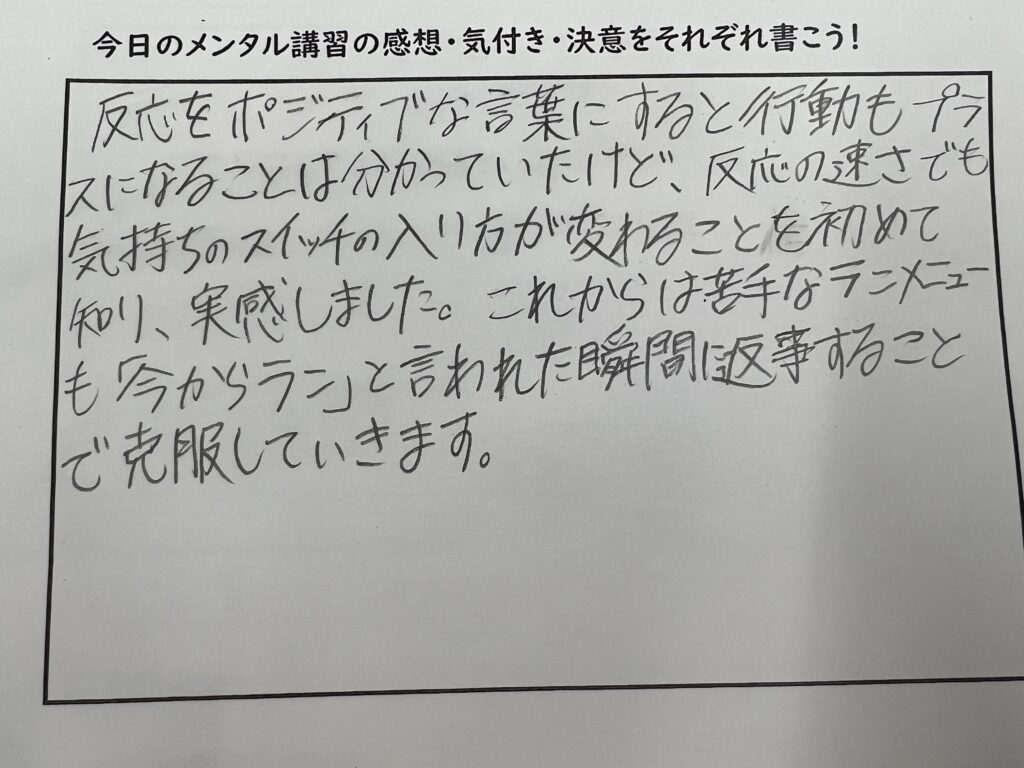 今日のメンタル講習の感想・気付き・決意をそれぞれ書こう!
反応をポジティブな言葉にすると行動もプラ
スになることは分かっていたけど、反応の速さでも
気持ちのスイッチの入り方が変わることを初めて
知り、実感しました。これからは苦手なランメニュー
も「今からラン」と言われた瞬間に返事すること
で克服していきます。